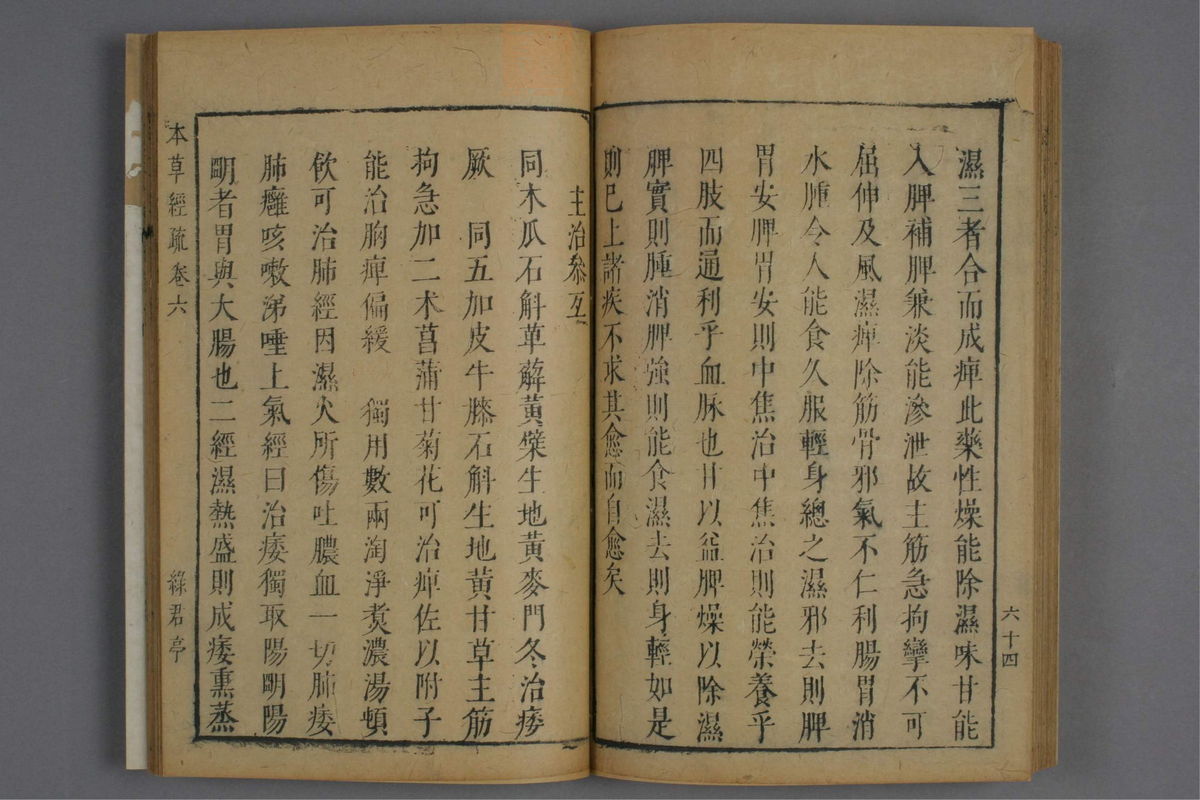 六十四
濕三者合而成痺此藥性燥能除濕味甘能
入脾補脾兼淡能滲泄故主筋急拘攣不可
屈伸及風濕痺除筋骨邪氣不仁利腸胃消
水腫令人能食久服輕身總之濕邪去則脾
胃安脾胃安則中焦治中焦治則能榮養乎
四肢而通利乎血脉也甘以益脾燥以除濕
脾實則腫消脾強則能食濕去則身輕如是
則已上諸疾不求其愈而自愈矣
主治參互
同木瓜石斛萆薢黃檗生地黃麥門冬治痿
厥 同五加皮牛膝石斛生地黃甘草主筋
拘急加二术菖蒲甘菊花可治痺佐以附子
能治胸痺偏緩 獨用數兩淘淨煑濃湯頓
飲可治肺經因濕火所傷吐膿血一切肺痿
肺癰咳嗽涕唾上氣經曰治痿獨取陽明陽
明者胃與大腸也二經濕熱盛則成痿熏蒸
本草經疏卷六 綠君亭